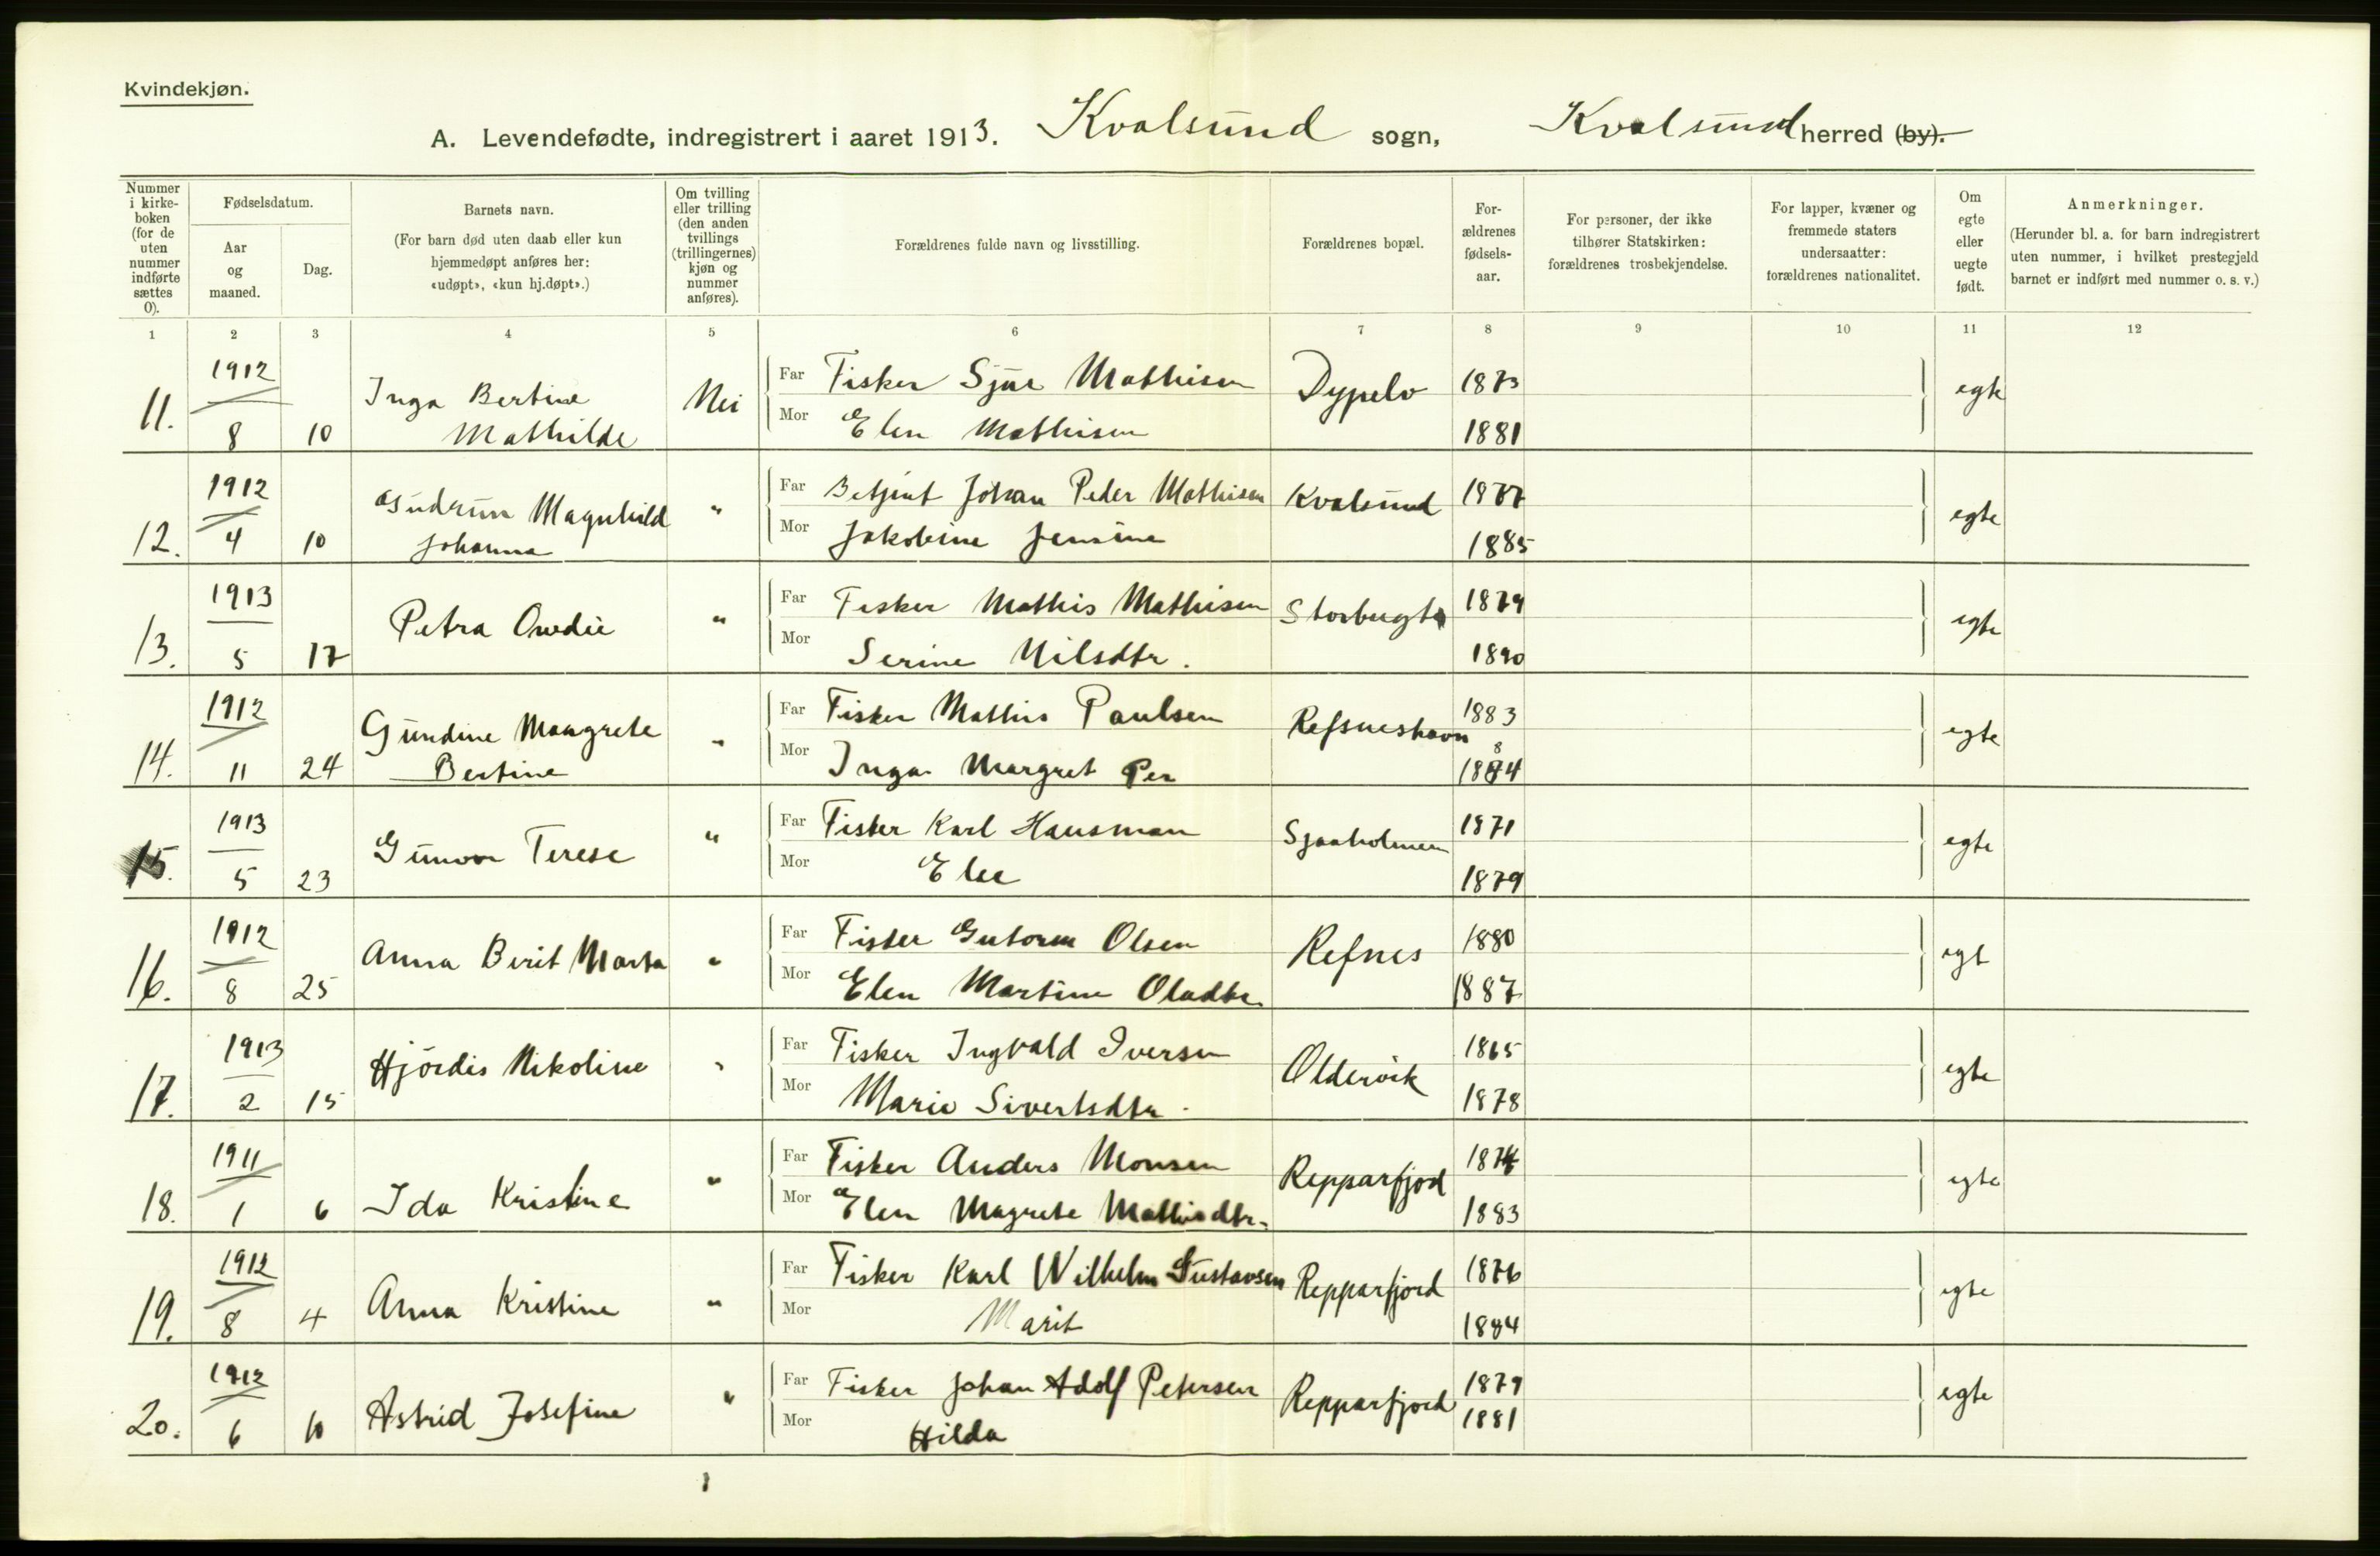 Kvindekjøn.
A. Levendefødte, indregistrert i aaret 1913. Kvalsund sogn, Kvalsund herred (by).
Nummer i kirke-boken (for de uten nummer indførte sættes 0).
Fødselsdatum.
Aar og maaned.
Dag.
Barnets navn.
(For barn død uten daab eller kun hjemmedøpt anføres her: «udøpt», «kun hj.døpt».)
Om tvilling eller trilling (den anden tvillings (trillingernes) kjøn og nummer anføres).
Forældrenes fulde navn og livsstilling.
Forældrenes bopæl.
For-ældrenes fødsels-aar.
For personer, der ikke tilhører Statskirken: forældrenes trosbekjendelse.
For lapper, kvæner og fremmede staters undersaatter: forældrenes nationalitet.
Om egte eller uegte født.
Anmerkninger.
(Herunder bl. a. for barn indregistrert uten nummer, i hvilket prestegjeld barnet er indført med nummer o. s. v.)
1 2 3 4 5 6 7 8 9 10 11 12
11. 1912 8 10 Inga Bertine Mathilde Nei
Far Fisker Sjur Mathisen Dypelv 1873 egte
Mor Elen Mathisen 1881
12. 1912 4 10 Gudrun Magnhild Johanna "
Far Betjent Johan Peder Mathisen Kvalsund 1877 egte
Mor Jakobine Jensine 1885
13. 1913 5 17 Petra "
Far Fisker Mathis Mathisen Storbugt 1879 egte
Mor Serine Nilsdtr. 1890
14. 1912 11 24 Gundine Maagrete Bertine "
Far Fisker Mathis Paulsen Refsneshavn 1883 egte
Mor Inga Margret Per 1884
15. 1913 5 23 Gunvor Terese "
Far Fisker Karl Hausman Sjaaholmen 1871 egte
Mor 1879
16. 1912 8 25 Anna Berit Marta "
Far Fisker Gutorm Olsen Refnes 1880 egt
Mor Elen Martine Oladtr. 1887
17. 1913 2 15 Hjördis Nikoline "
Far Fisker Ingvald Iversen Oldervik 1865 egte
Mor Marie Sivertsdtr. 1878
18. 1911 1 6 Ida Kristine "
Far Fisker Anders Monsen Repparfjod 1874 egte
Mor Elen Magrete Mathisdtr. 1883
19. 1912 8 4 Anna Kristine "
Far Fisker Karl Wilhelm Gustavsen Repparfjord 1876 egte
Mor Marit 1884
20. 1912 6 10 Astrid Josefine "
Far Fisker Johan Adolf Petersen Repparfjord 1879 egte
Mor Hilda 1881